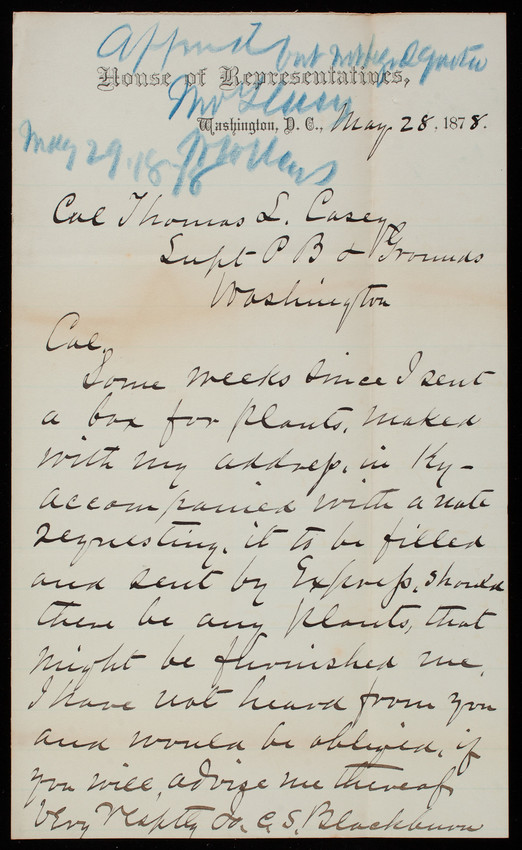 House of Representatives,
Washington, D. C., May 28, 1878.
May 29, 1878
Col Thomas L. Casey
Supt P B & Grounds
Washington
Col,
Some weeks since I sent
a box for plants, maked
with my address, in Ky-
accompanied with a note
requesting, it to be filled
and sent by Express, should
there be any plants, that
might be furnished me.
I have not heard from you
and would be obliged, if
you will, advise me thereof
Very Resptly Jo. C. S. Blackburn